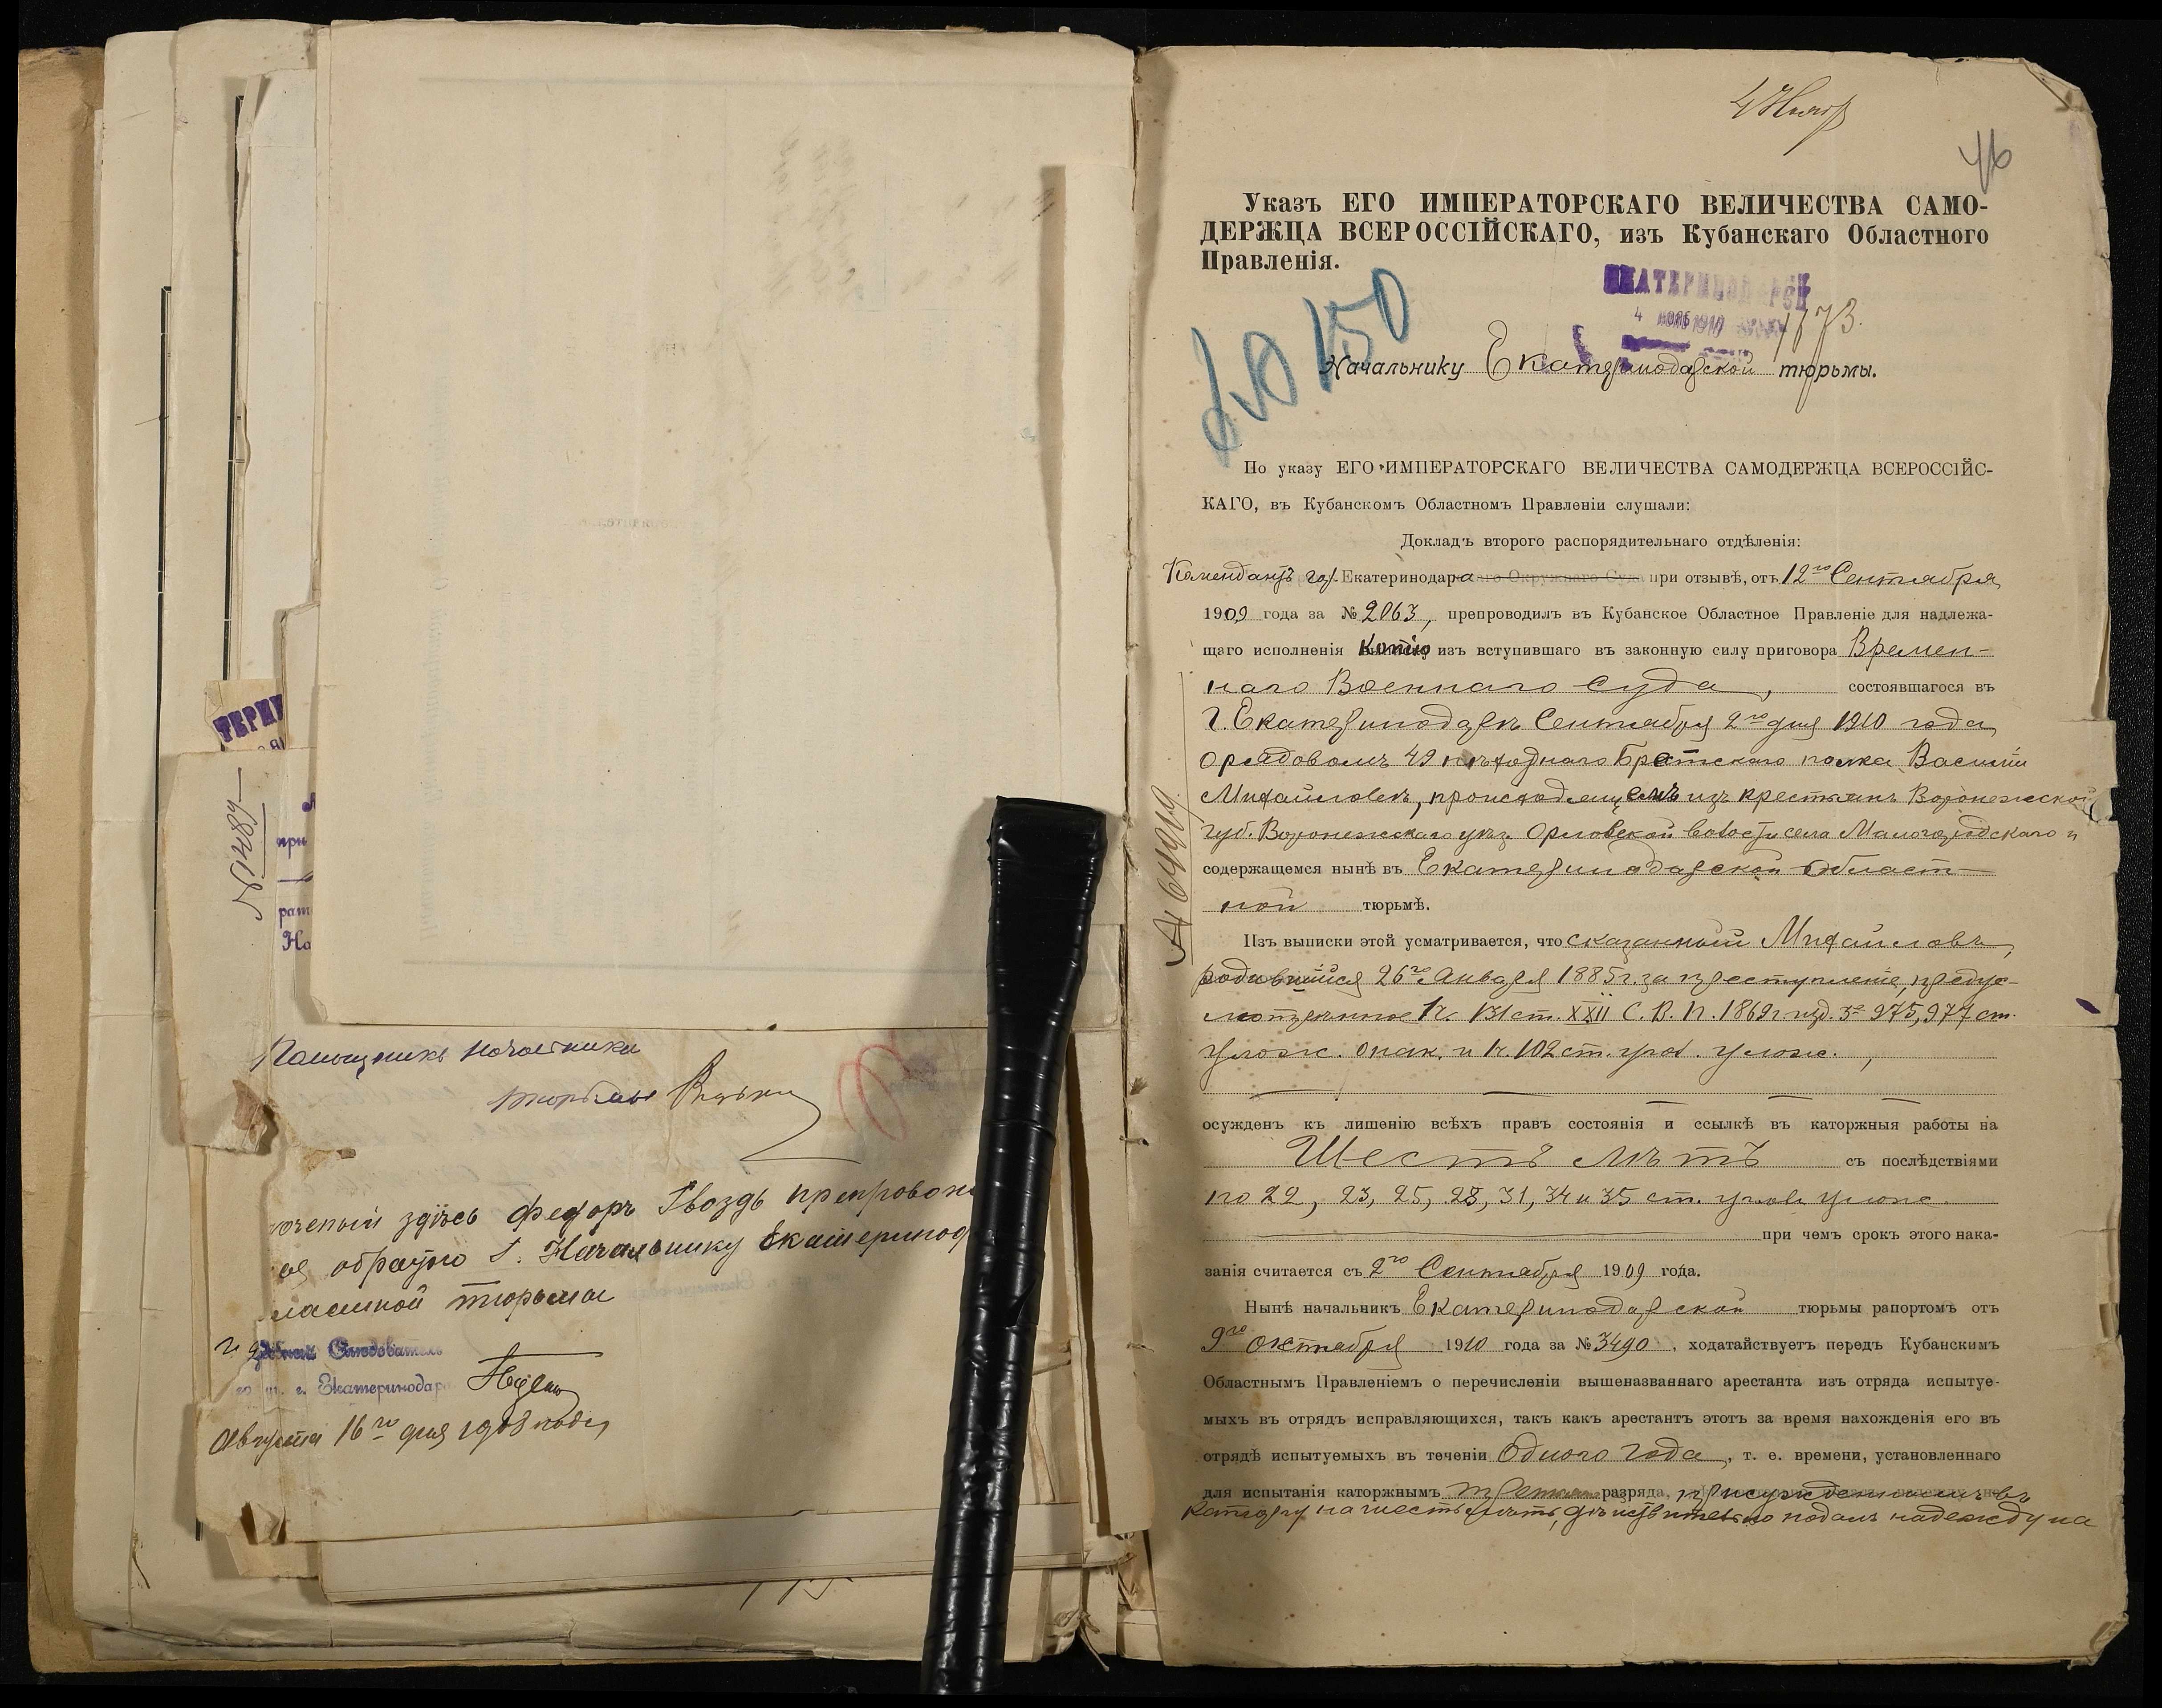 № 1489
Помощникъ начальника
тюрьмы
здѣсь Федоръ Гвоздь препровож
обратно Г. Начальнику Екатеринод
ластной тюрьмы
Слѣдователь
г. Екатеринодара
Августа 16го дня 1908 года
46
Указъ ЕГО ИМПЕРАТОРСКАГО ВЕЛИЧЕСТВА САМО-
ДЕРЖЦА ВСЕРОССІЙСКАГО, изъ Кубанскаго Областного
Правленія.
Начальнику Екатеринодарской тюрьмы.
По указу ЕГО ИМПЕРАТОРСКАГО ВЕЛИЧЕСТВА САМОДЕРЖЦА ВСЕРОССІЙС-
КАГО, въ Кубанскомъ Областномъ Правленіи слушали:
Докладъ второго распорядительнаго отдѣленія:
Комендантъ гор. Екатеринодара аго Окружнаго Суда при отзывѣ, отъ 12го Сентября
1909 года за № 2063, препроводилъ въ Кубанское Областное Правленіе для надлежа-
щаго исполненія копію изъ вступившаго въ законную силу приговора Времен-
наго Военнаго Суда, состоявшагося въ
г. Екатеринодарѣ Сентября 2го дня 1910 года
о рядовомъ 49 пѣхотнаго Брестскаго полка Василіи
Михайловѣ, происходящемъ изъ крестьянъ Воронежской
губ. Воронежскаго уѣз. Орловской волости села Малогородскаго и
содержащемся нынѣ въ Екатеринодарской Област-
ной тюрьмѣ.
Изъ выписки этой усматривается, что сказанный Михайловъ,
родившійся 26го Января 1885 г. за преступленіе, предус-
мотрѣнное 1 ч. 131 ст. XXII С. В. П. 1869 г. изд. 3е 975, 977 ст.
Улож. о нак. и 1 ч. 102 ст. угол. улож.,
осужденъ къ лишенію всѣхъ правъ состоянія и ссылкѣ въ каторжныя работы на
Шесть лѣтъ съ послѣдствіями
по 22, 23, 25, 28, 31, 34 и 35 ст. угол. улож.
при чемъ срокъ этого нака-
занія считается съ 2го Сентября 1909 года.
Нынѣ начальникъ Екатеринодарской тюрьмы рапортомъ отъ
9го Октября 1910 года за № 3490, ходатайствуетъ передъ Кубанскимъ
Областнымъ Правленіемъ о перечисленіи вышеназваннаго арестанта изъ отряда испытуе-
мыхъ въ отрядъ исправляющихся, такъ какъ арестантъ этотъ за время нахожденія его въ
отрядѣ испытуемыхъ въ теченіи Одного года, т. е. времени, установленнаго
для испытанія каторжнымъ разряда, присужденнымъ въ
каторгу на шесть лѣтъ, дѣйствительно подалъ надежду на